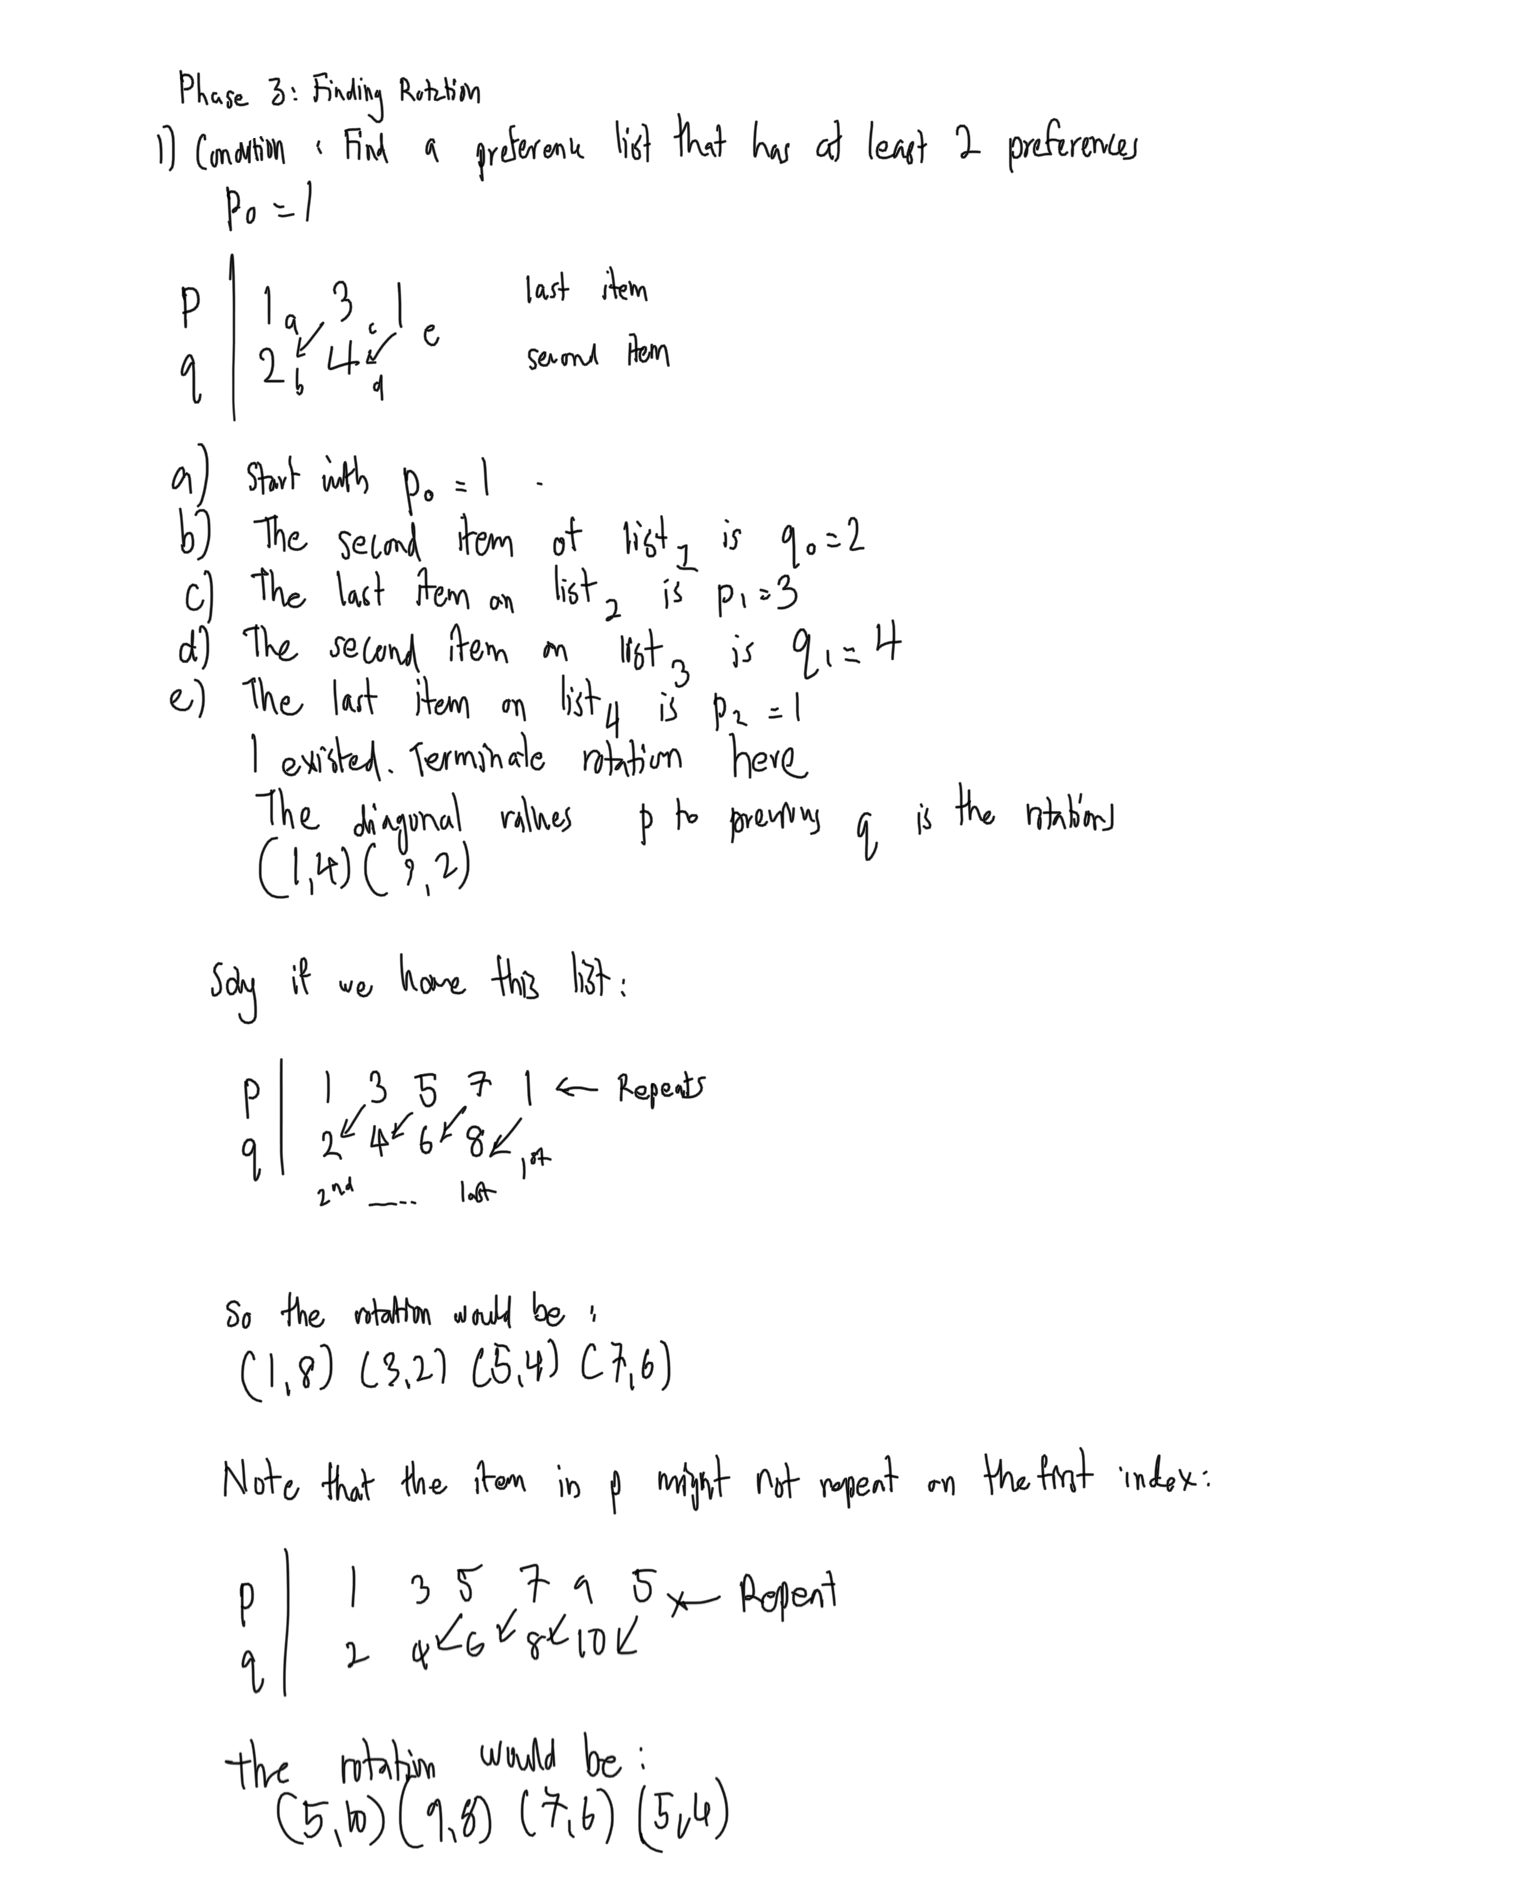 Phase 3: Finding Rotation
1) Condition : Find a preference list that has at least 2 preferences
p0 = 1
p | 1 a 3 c 1 e last item
q | 2 b 4 d second item
a) Start with p0 = 1 .
b) The second item of list 1 is q0 = 2
c) The last item on list 2 is p1 = 3
d) The second item on list 3 is q1 = 4
e) The last item on list 4 is p2 = 1
1 existed. Terminate rotation here
The diagonal values p to previous q is the rotations
(1,4) (3,2)
Say if we have this list:
p | 1 3 5 7 1 ← Repeats
q | 2 4 6 8 1st
2nd ----- last
So the rotation would be :
(1,8) (3,2) (5,4) (7,6)
Note that the item in p might not repeat on the first index:
p | 1 3 5 7 9 5 ← Repeat
q | 2 4 6 8 10
the rotation would be :
(5,10) (9,8) (7,6) (5,4)